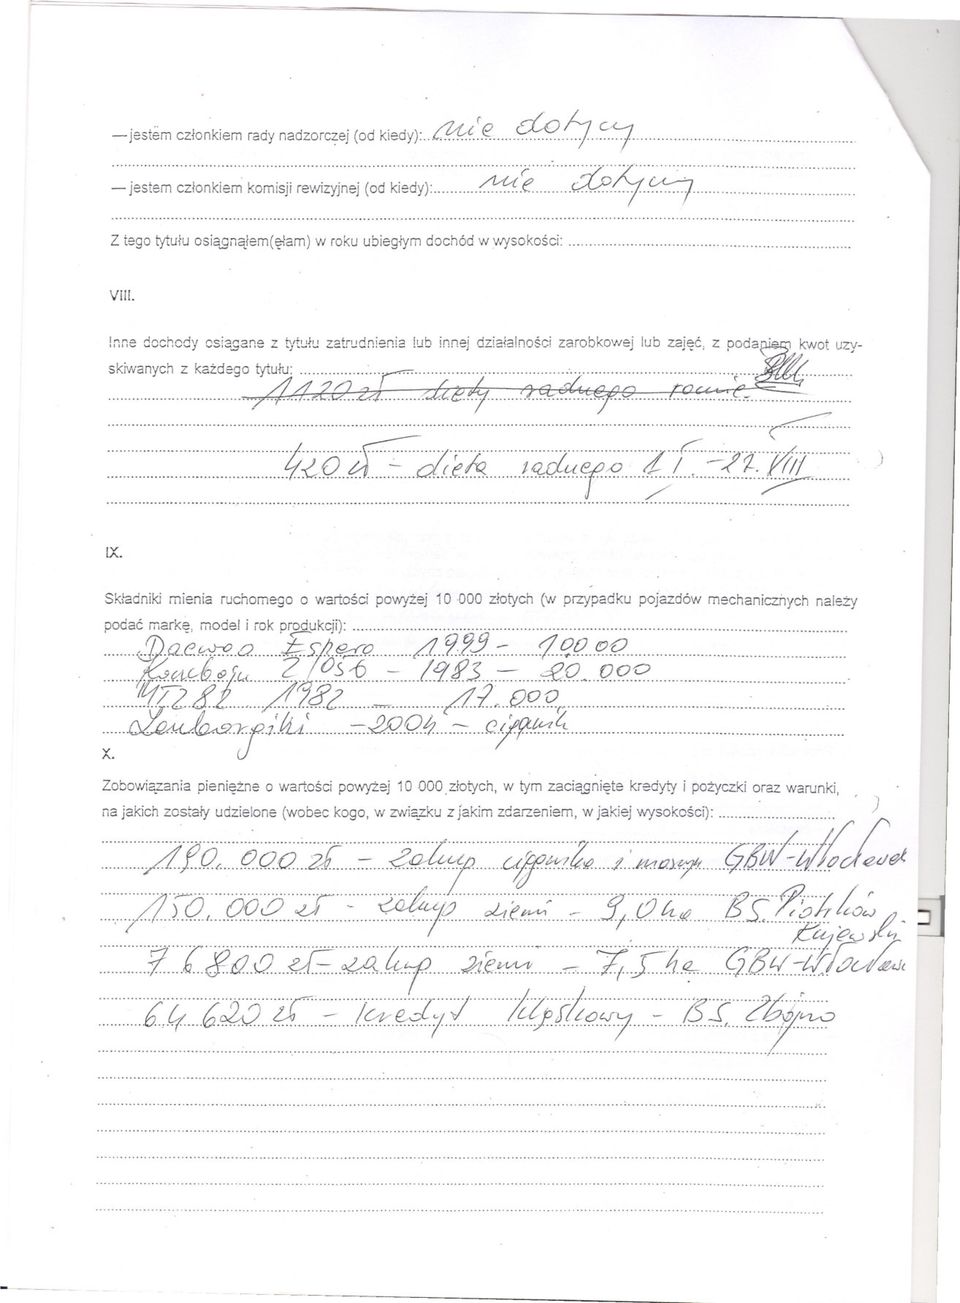 — jestem członkiem rady nadzorczej (od kiedy): nie dotyczy
— jestem członkiem komisji rewizyjnej (od kiedy): nie dotyczy
Z tego tytułu osiągnąłem(ęłam) w roku ubiegłym dochód w wysokości:
VIII.
Inne dochody osiągane z tytułu zatrudnienia lub innej działalności zarobkowej lub zajęć, z podaniem kwot uzy-
skiwanych z każdego tytułu:
1120 zł diety radnego rocznie
420 zł - dieta radnego 1 I. - 27. VIII
IX.
Składniki mienia ruchomego o wartości powyżej 10 000 złotych (w przypadku pojazdów mechanicznych należy
podać markę, model i rok produkcji):
Daewoo Espero 1999 - 10000
Kombajn Z 056 - 1983 - 20.000
MTZ 82 1982 - 17.000
Lamborgiki - 200h - ciągnik
X.
Zobowiązania pieniężne o wartości powyżej 10 000 złotych, w tym zaciągnięte kredyty i pożyczki oraz warunki,
na jakich zostały udzielone (wobec kogo, w związku z jakim zdarzeniem, w jakiej wysokości):
190.000 zł - zakup ciągnika i maszyn GBW - Włocławek
150.000 zł - zakup ziemi - 9,0 ha BS. Piotrków
Kujawski
76800 zł - zakup ziemi - 7,5 ha GBW - Włocławek
64620 zł - kredyt klęskowy - BS. Zbójno